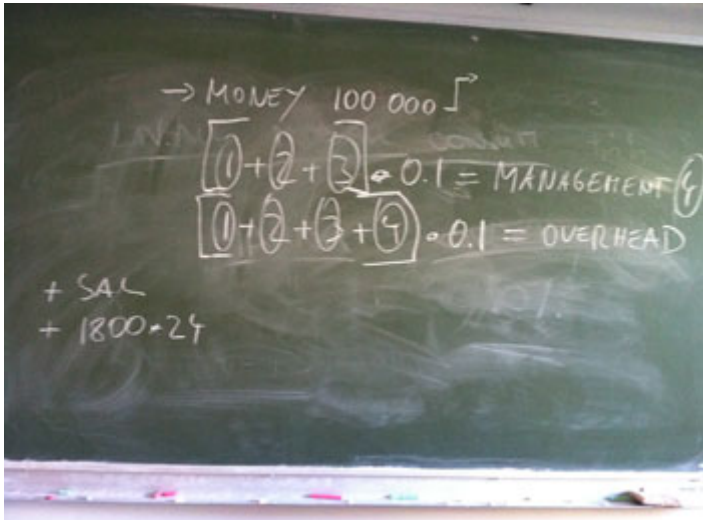 → MONEY 100 000
[① + ② + ③] • 0.1 = MANAGEMENT ④
[① + ② + ③ + ④] • 0.1 = OVERHEAD
+ SAL
+ 1800 • 24